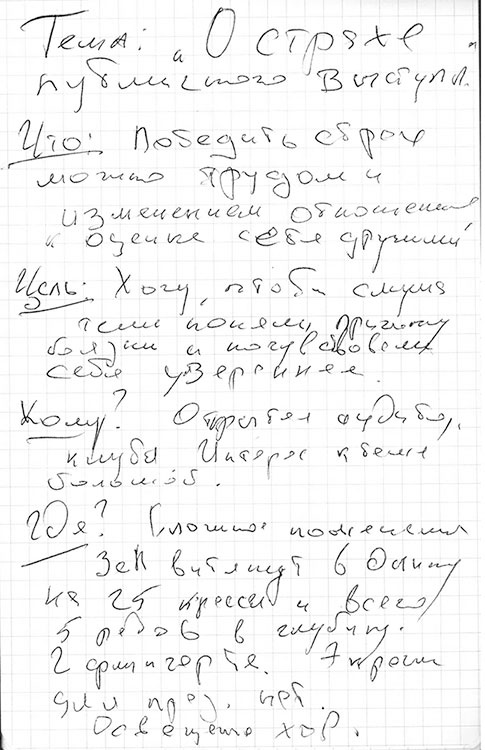 Тема: „О страхе"
публичного выступл.
Что: Победить страх
можно трудом и
изменением отношения
к оценке себя другими
Цель: Хочу, чтобы слуша
тели поняли причину
боязни и почувствовали
себя увереннее.
Кому? Открытая
клуба Интерес к теме
большой.
Где? помещения
Зал вытянут в длину
на 25 кресел и всего
5 рядов в глубину.
2 флипчарта. Экрана
для през. нет.
Освещение хор.